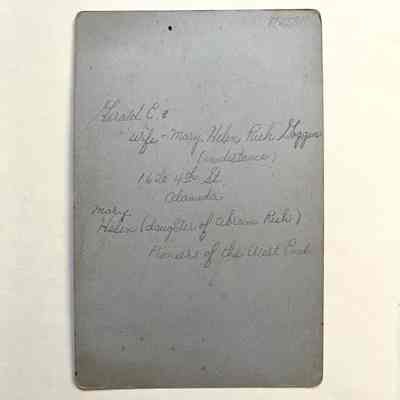 Gerald C. &
wife - Mary Helen Rish Goggin
(in distance)
1620 4th St.
Alameda
Mary
Helen (daughter of Abram Rish)
Pioneers of the West End